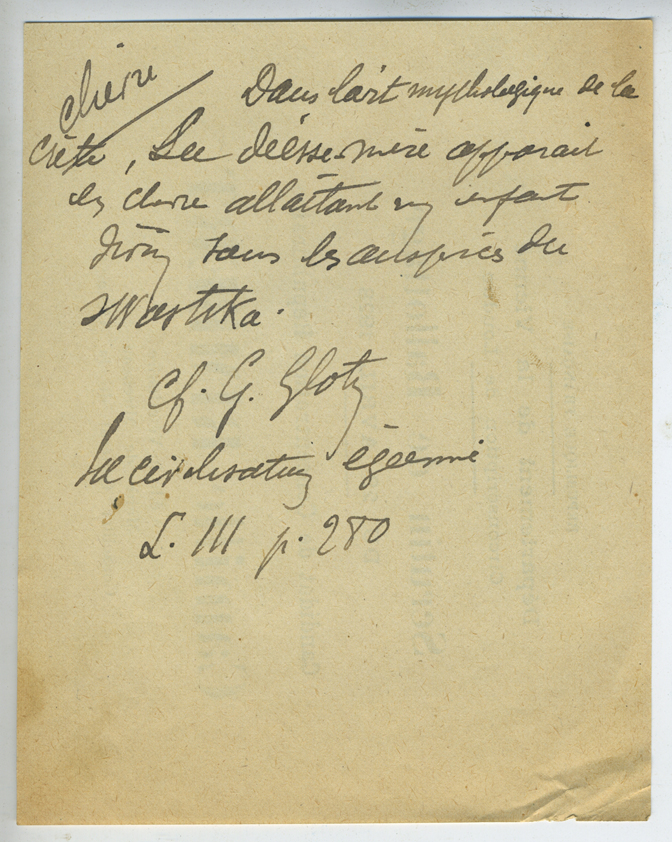 chèvre
Dans l'art mythologique de la
Crète, La déesse-mère apparait
en chèvre allaitant un enfant
divin sous les auspices du
swastika.
cf. G. Glotz
La civilisation égéenne
L. III p. 280